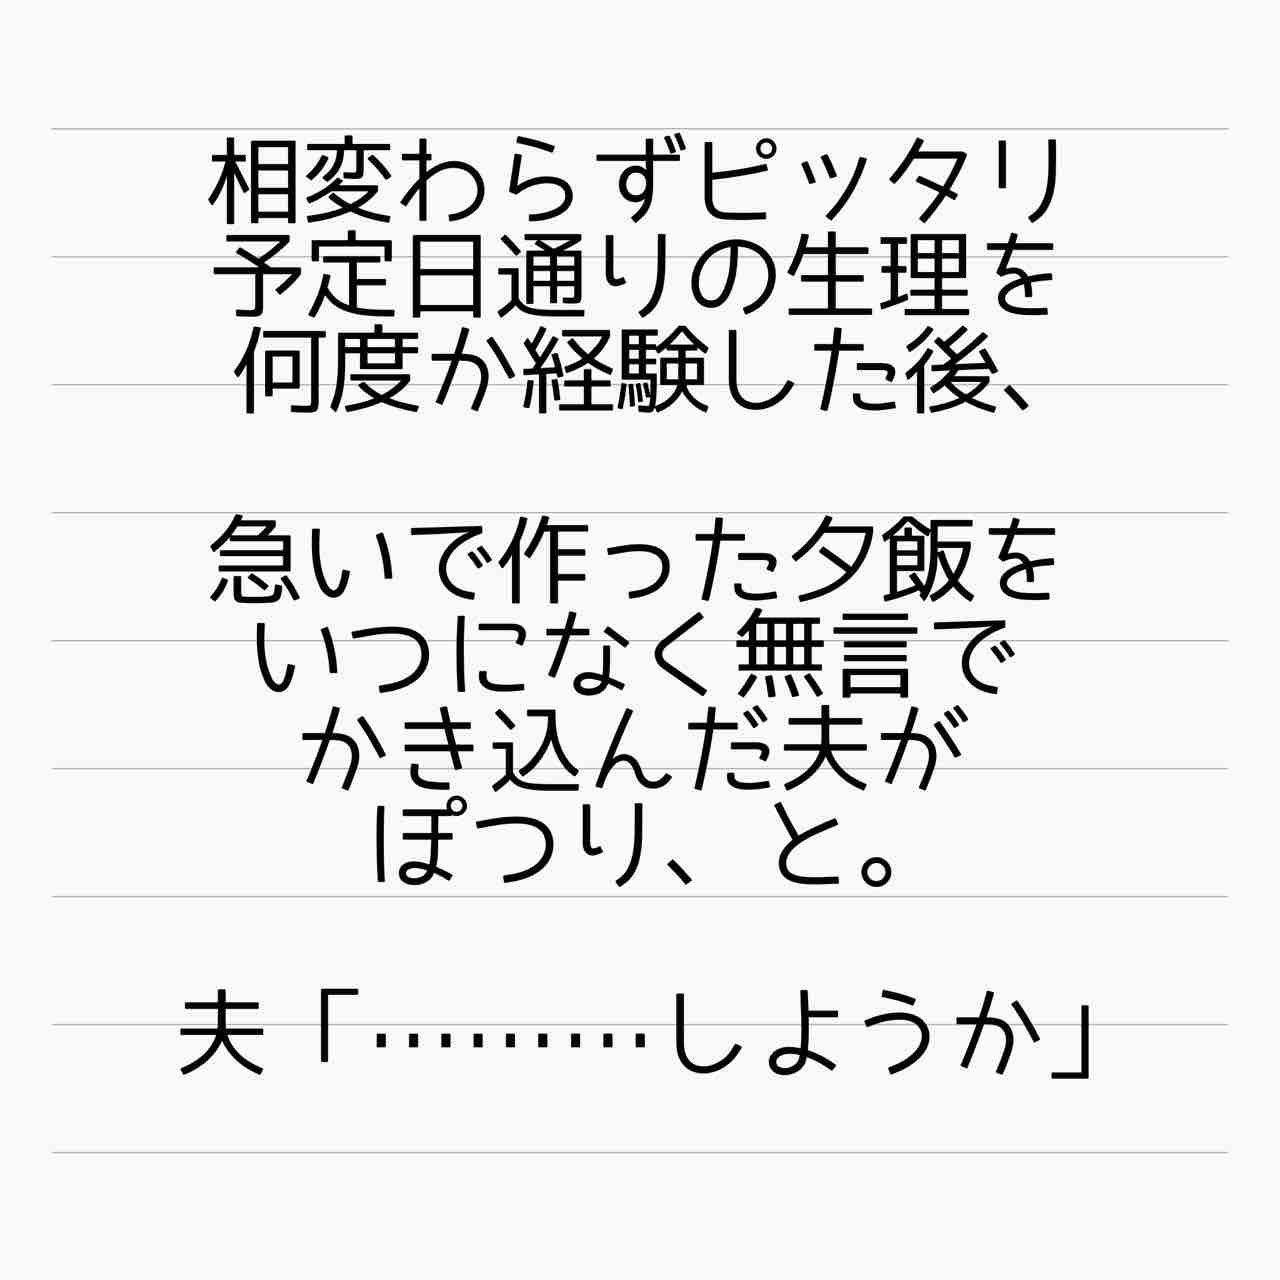 相変わらずピッタリ
予定日通りの生理を
何度か経験した後、
急いで作った夕飯を
いつになく無言で
かき込んだ夫が
ぽつり、と。
夫「………しようか」